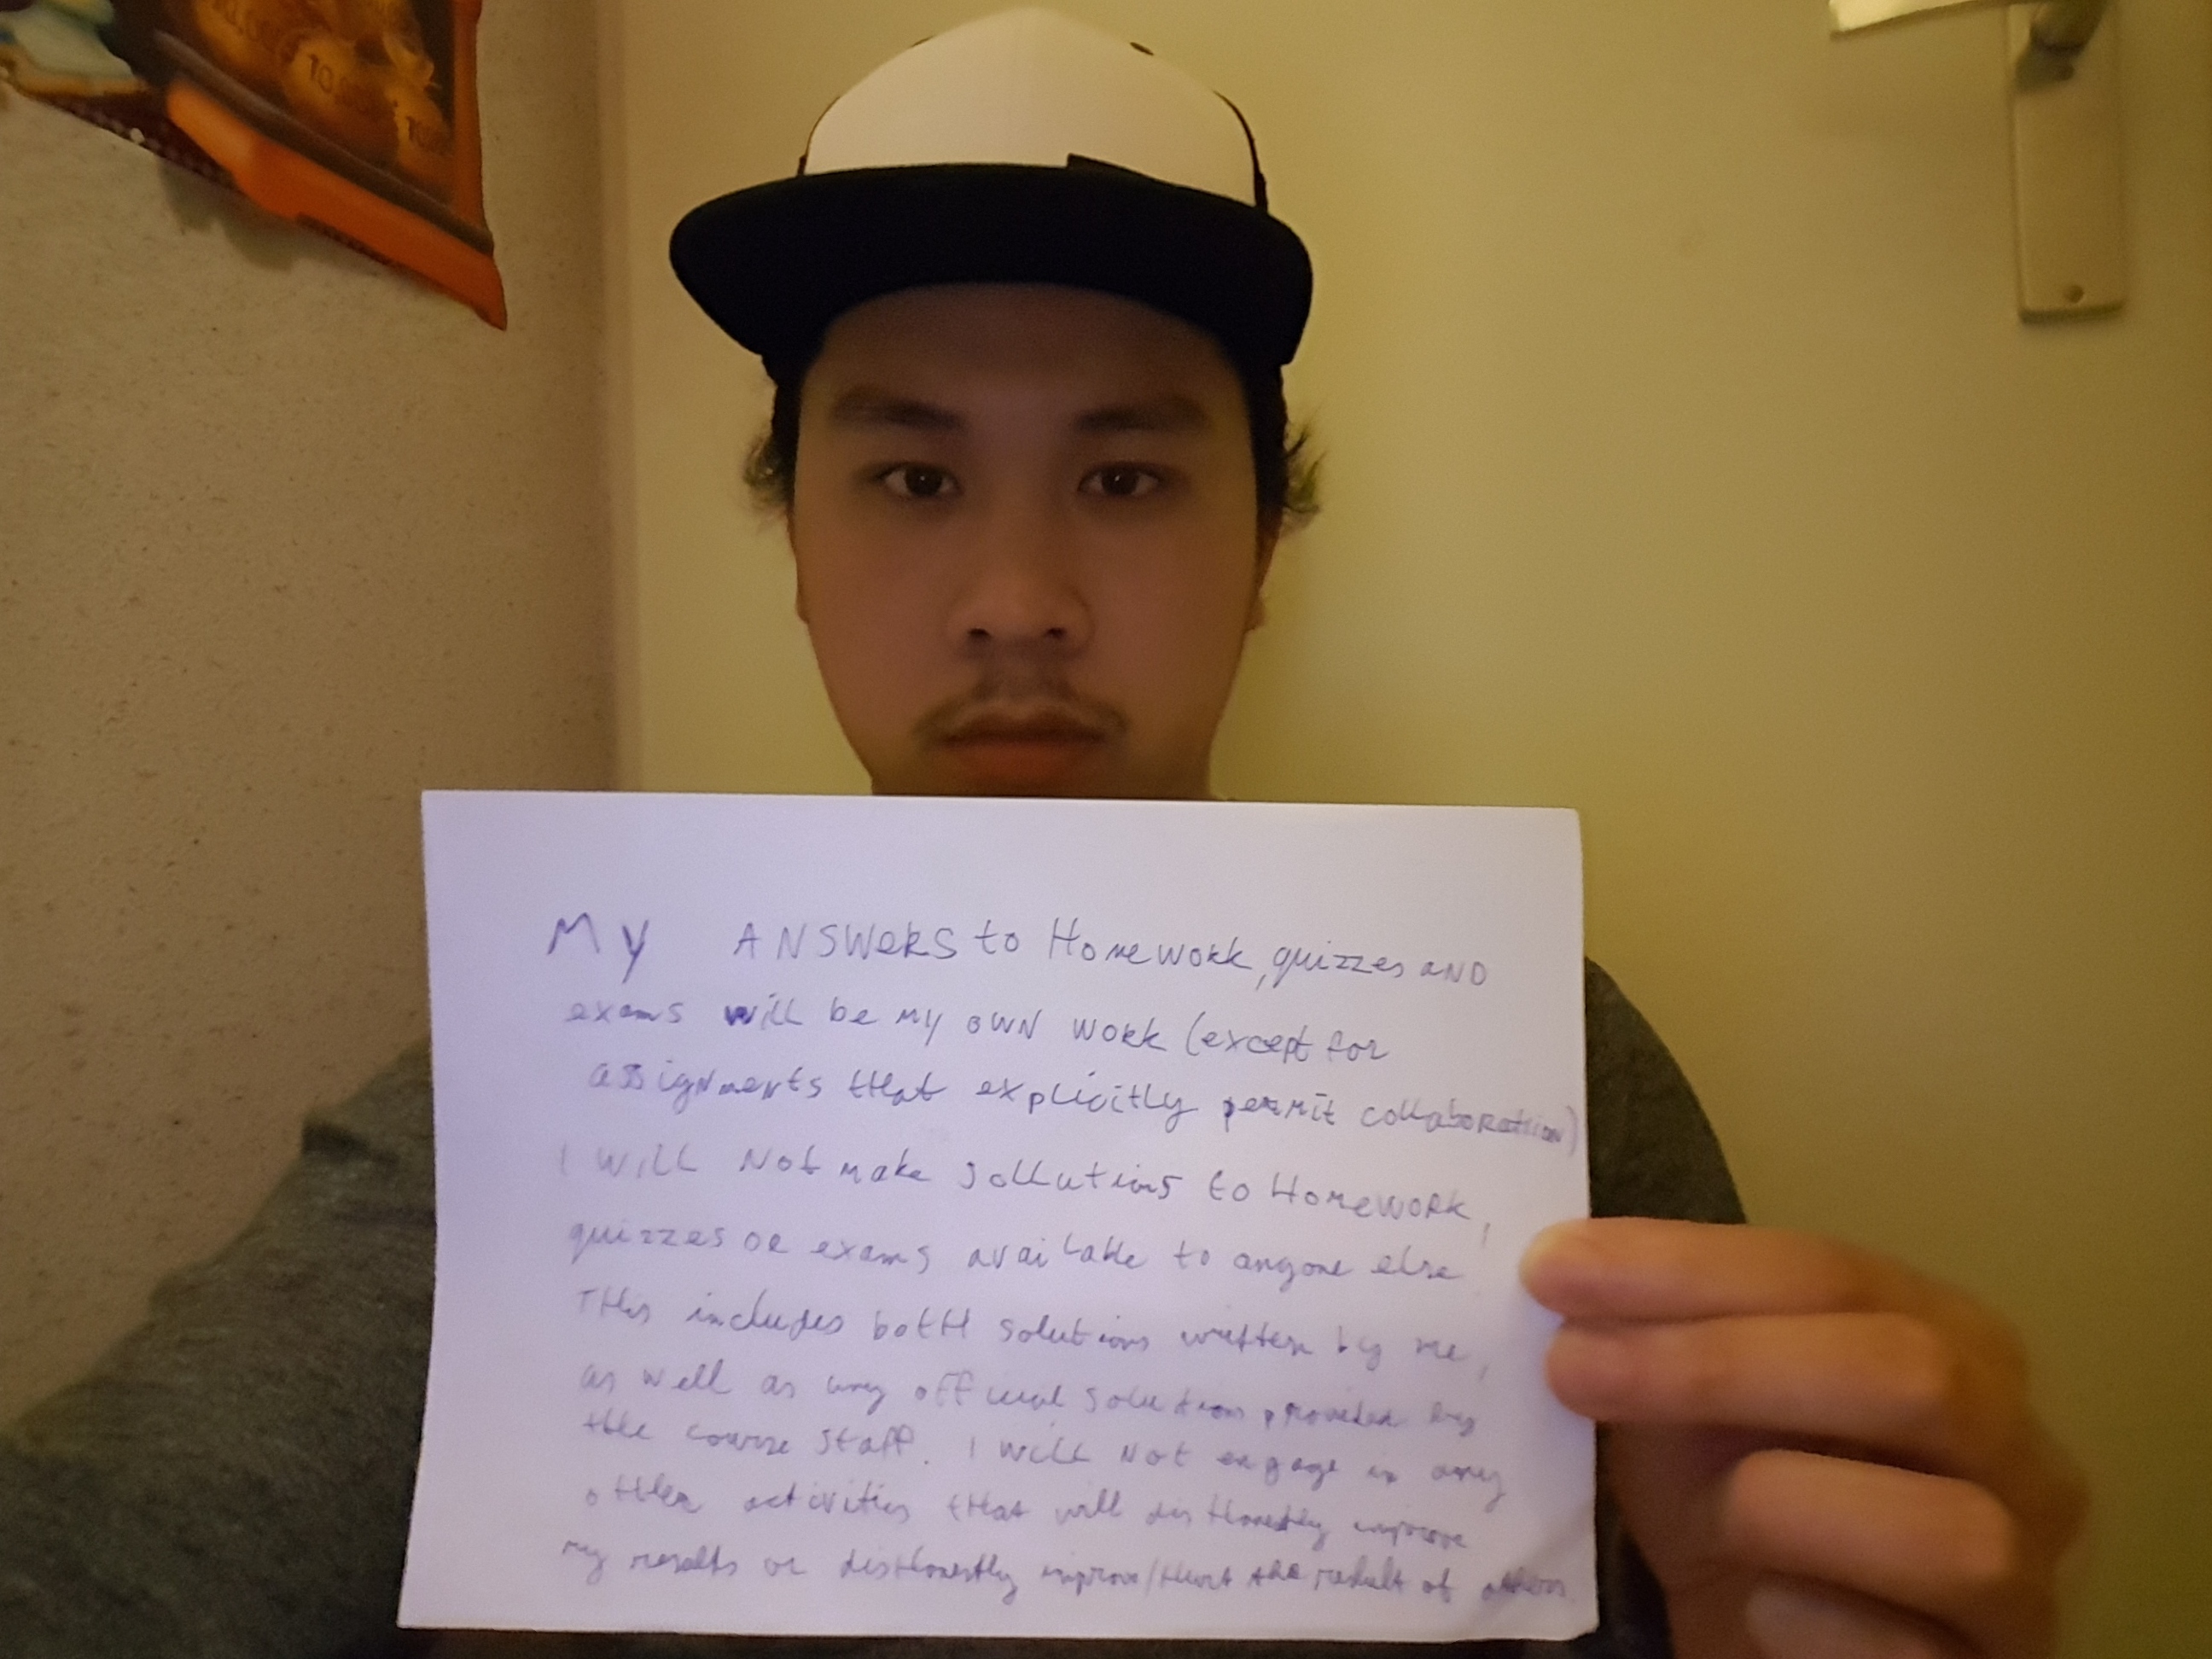 10.000
10.000
My ANSWERS to Homework, quizzes AND
exams will be my own work (except for
assignments that explicitly permit collaboration)
I will Not make sollutions to Homework,
quizzes or exams available to anyone else.
This includes both solutions written by me,
as well as any official solutions provided by
the course staff. I will Not engage in any
other activities that will dishonestly improve
my results or dishonestly improve/Hurt the result of others.